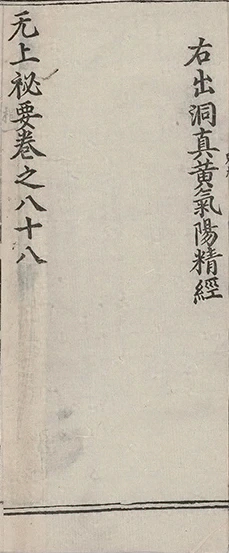 右出洞真黃氣陽精經
无上祕要卷之八十八